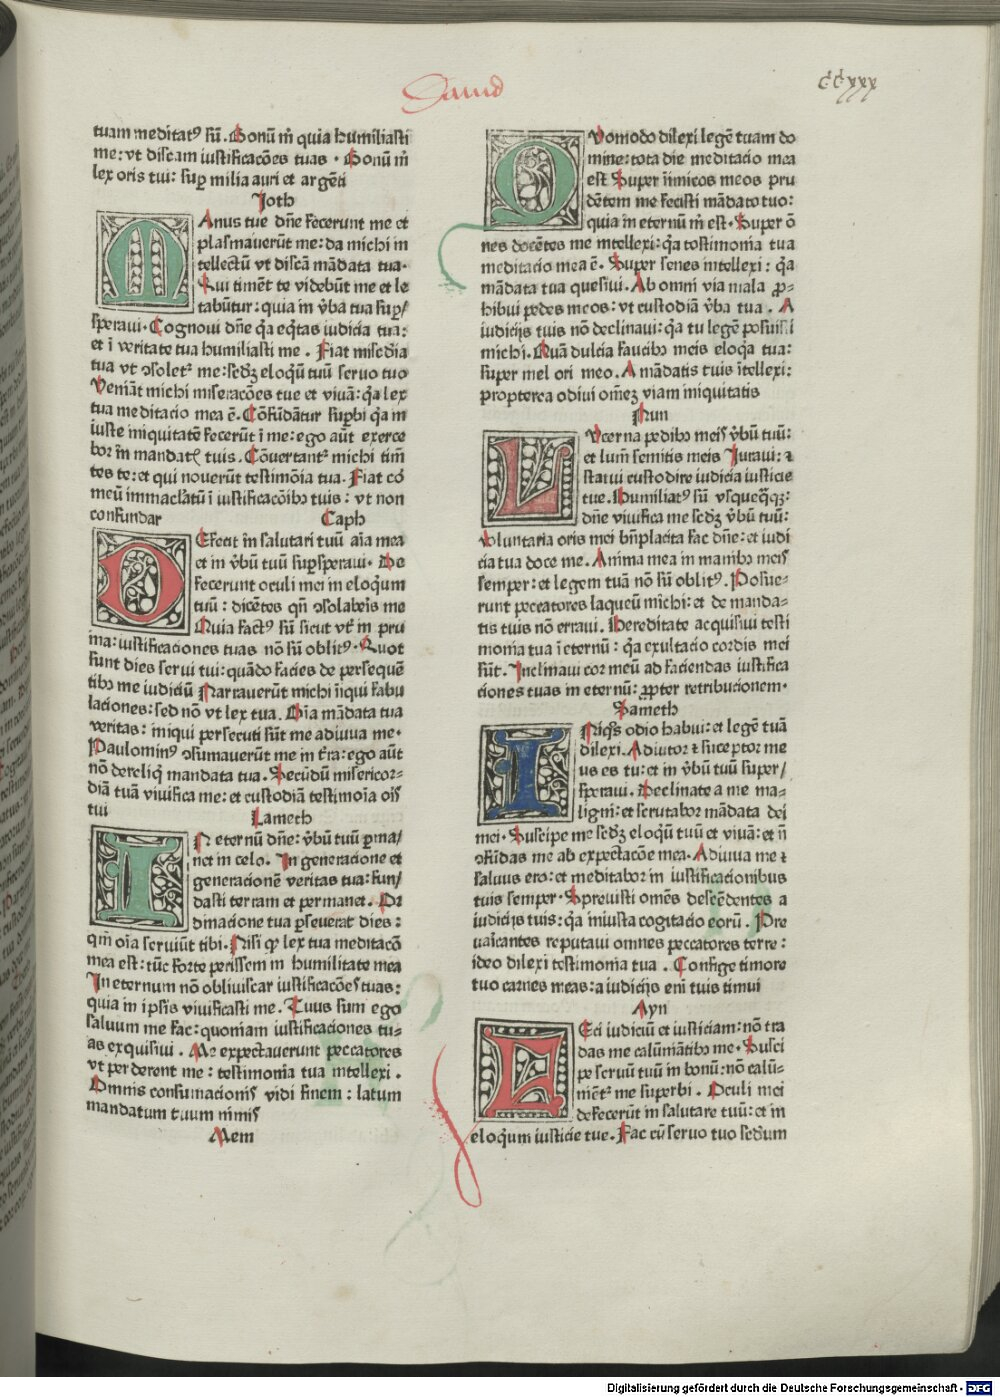 Dauid
ccxxx
tuam meditatꝯ sū. Bonū m̄ quia humiliasti
me: vt discam iustificacōes tuas. Bonū m̄
lex oris tui: suꝑ milia auri et argēti
Joth
MAnus tue dn̄e fecerunt me et
plasmauerūt me: da michi in
tellectū vt discā mādata tua.
Qui timēt te videbūt me et le
tabūtur: quia in v̄ba tua suꝑ/
speraui. Cognoui dn̄e q̄a eq̄tas iudicia tua:
et ī veritate tua humiliasti me. Fiat mīsēdia
tua vt ↄsoletꝛ me: sedꝫ eloqū tuū seruo tuo
Veniāt michi miseracōes tue et viuā: q̄a lex
tua meditacio mea ē. Cōfūdātur suꝑbi q̄a in
iuste iniquitatē fecerūt ī me: ego aūt exerce
bor īn mandatꝭ tuis. Cōuertantꝛ michi timē
tes te: et qui nouerūt testimōia tua. Fiat coꝛ
meū immaclātū ī iustificacōibꝯ tuis: vt non
confundar Caph
DEfecit in salutari tuū aīa mea
et in v̄bū tuū suꝑsperaui. De
fecerunt oculi mei in eloqum
tuū: dicētes qn̄ ↄsolabeis me
Quia factꝯ sū sicut vtꝭ in pru
ina: iustificaciones tuas nō sū oblitꝯ. Quot
sunt dies serui tui: quādo facies de persequē
tibꝯ me iudiciū Narrauerūt michi īiqui fabu
laciones: sed nō vt lex tua. Oīa mādata tua
veritas: iniqui persecuti sūt me adiuua me.
Paulominꝯ ↄsumauerūt me in t̄ra: ego aūt
nō dereliqͥ mandata tua. Secūdū misericor⸗
diā tuā viuifica me: et custodiā testimoīa oīs
tui
Lameth
IN eternū dn̄e: v̄bū tuū ꝑma/
net in celo. In generacione et
generacionē veritas tua: fun/
dasti terram et permanet. Or
dinacione tua ꝑseuerat dies:
qm̄ oīa seruiūt tibi. Nisi ꝙ lex tua meditacō
mea est: tūc forte perissem in humilitate mea
In eternum nō obliuiscar iustificacōes tuas:
quia in ipsis viuificasti me. Tuus sum ego
saluum me fac: quoniam iustificaciones tu⸗
as exquisiui. Me expectauerunt peccatores
vt perderent me: testimonia tua intellexi.
Omnis consumacionis vidi finem: latum
mandatum tuum nimis
Mem
QVomodo dilexi legē tuam do
mine: tota die meditacio mea
est Super īimicos meos pru
dētem me fecisti mādato tuo:
quia in eternū m̄ est. Super ō
nes docētes me intellexi: q̄a testimonia tua
meditacio mea ē. Super senes intellexi: q̄a
mādata tua quesiui. Ab omni via mala ꝓ⸗
hibui pedes meos: vt custodiā v̄ba tua. A
iudicijs tuis nō declinaui: q̄a tu legē posuisti
michi. Quā dulcia faucibꝯ meis eloq̄a tua:
super mel ori meo. A mādatis tuis ītellexi:
propterea odiui om̄eꝫ viam iniquitatis
Nun
LVcerna pedibꝯ meis v̄bū tuū:
et lumē semitis meis Juraui: ⁊
statui custodire iudicia iusticie
tue. Humiliatꝯ sū vsqueq̄qꝫ:
dn̄e viuifica me sedꝫ v̄bū tuū:
Voluntaria oris mei bn̄placita fac dn̄e: et iudi
cia tua doce me. Anima mea in manibꝯ meis
semper: et legem tuā nō sū oblitꝯ. Posue⸗
runt peccatores laqueū michi: et de manda⸗
tis tuis nō erraui. Hereditate acquisiui testi
monia tua ī eternū: q̄a exultacio cordis mei
sūt. Inclinaui cor meū ad faciendas iustifica
ciones tuas in eternū: ꝓpter retribucionem.
Sameth
INiqͦs odio habui: et legē tuā
dilexi. Adiutor ⁊ susceptor me
us es tu: et in v̄bū tuū super/
speraui. Declinate a me ma⸗
ligni: et scrutabor mādata dei
mei. Suscipe me sedꝫ eloqū tuū et viuā: et n̄
ↄfūdas me ab expectacōe mea. Adiuua me ⁊
saluus ero: et meditabor in iustificacionibus
tuis semper. Spreuisti omēs descēdentes a
iudicijs tuis: q̄a iniusta cogitacio eorū. Pre
uaricantes reputaui omnes peccatores terre:
ideo dilexi testimonia tua. Confige timore
tuo carnes meas: a iudicijs em̄ tuis timui
Ayn
FEci iudiciū et iusticiam: nō tra
das me calūniātibꝯ me. Susci
pe seruū tuū in bonū: nō calū⸗
niētꝛ me superbi. Oculi mei
defecerūt in salutare tuū: et in
eloqum iusticie tue. Fac cū seruo tuo sedum
Digitalisierung gefördert durch die Deutsche Forschungsgemeinschaft - DFG